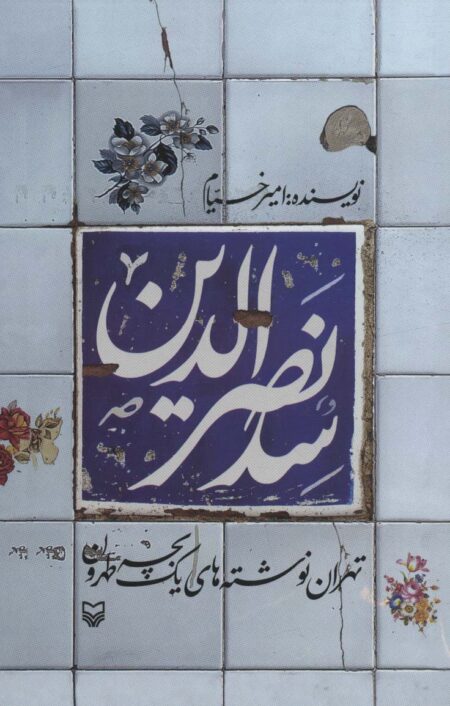 نویسنده: امیر خیام
سِد نَصرالدین
تهران نوشته‌های یک بچه طهرون